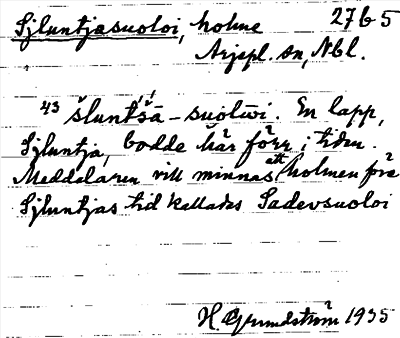 Sjluntjasuoloi, holme 27b5
Arjepl. sn, Nbl.
43 šlunt's̄ā - suolūi. En lapp,
Sjluntja, bodde här förr i tiden.
Meddelaren vill minnas, att holmen före
Sjluntjas tid kallades Sadevsuoloi
H. Grundström 1935